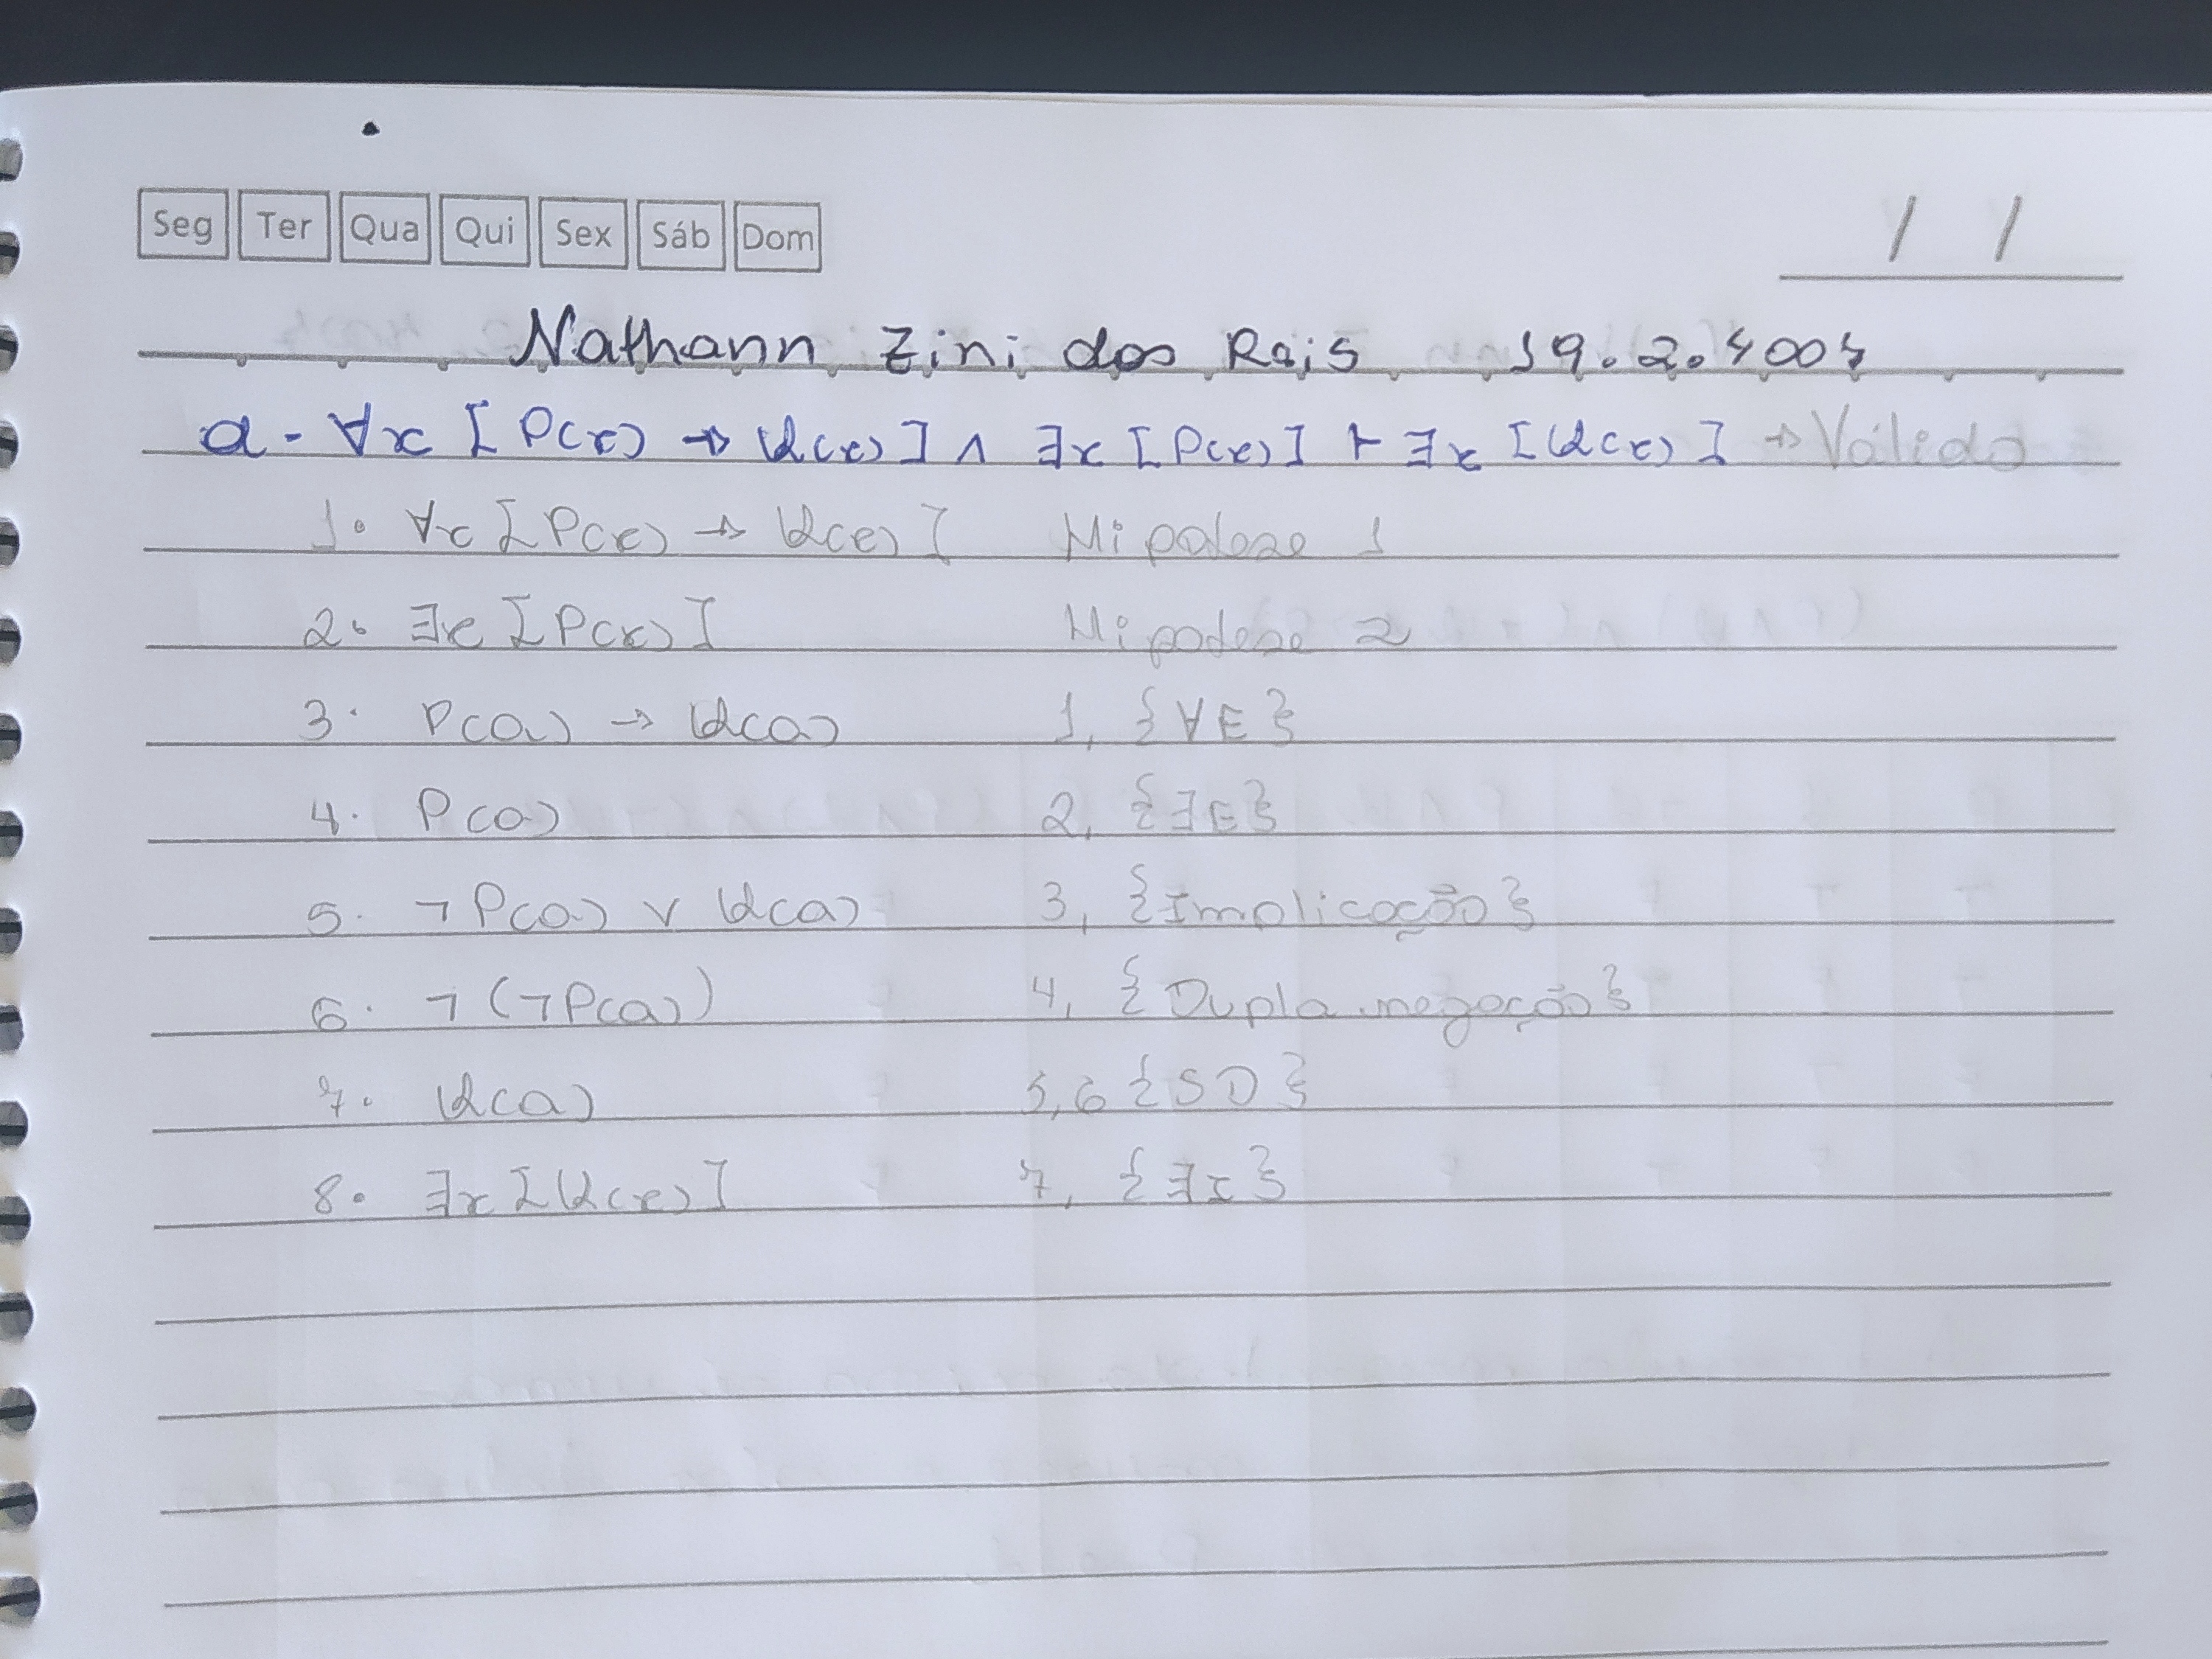 Seg Ter Qua Qui Sex Sáb Dom
/ /
Nathann Zini dos Reis 19.2.4007
a - ∀x [P(x) → Q(x)] ∧ ∃x [P(x)] ⊢ ∃x [Q(x)] → Válido
1. ∀x [P(x) → Q(x)] Hipotese 1
2. ∃x [P(x)] Hipotese 2
3. P(a) → Q(a) 1, {∀E}
4. P(a) 2, {∃E}
5. ¬P(a) ∨ Q(a) 3, {Implicação}
6. ¬(¬P(a)) 4, {Dupla negação}
7. Q(a) 5,6 {SD}
8. ∃x [Q(x)] 7, {∃I}